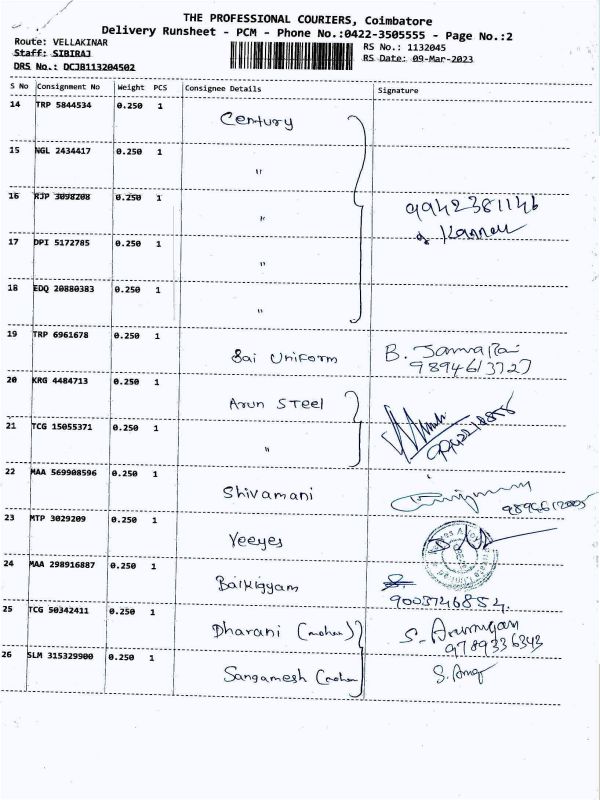 THE PROFESSIONAL COURIERS, Coimbatore
Delivery Runsheet - PCM - Phone No.:0422-3505555 - Page No.:2
Route: VELLAKINAR RS No.: 1132045
Staff: SIBIRAJ RS Date: 09-Mar-2023
DRS No.: DCJB113204502
S No Consignment No Weight PCS Consignee Details Signature
14 TRP 5844534 0.250 1 Century
15 NGL 2434417 0.250 1 "
16 RJP 3098208 0.250 1 " 9942381146
Kannan
17 DPI 5172785 0.250 1 "
18 EDQ 20880383 0.250 1 "
19 TRP 6961678 0.250 1 Sai Uniform B.
9894613727
20 KRG 4484713 0.250 1 Arun Steel
21 TCG 15055371 0.250 1 "
22 MAA 569908596 0.250 1 Shivamani
23 MTP 3029209 0.250 1 Veeyes
24 MAA 298916887 0.250 1
9003746854.
25 TCG 50342411 0.250 1 Dharani (mohan) S. Arumugam
9789336343
26 SLM 315329900 0.250 1 Sangamesh (mohan) S.